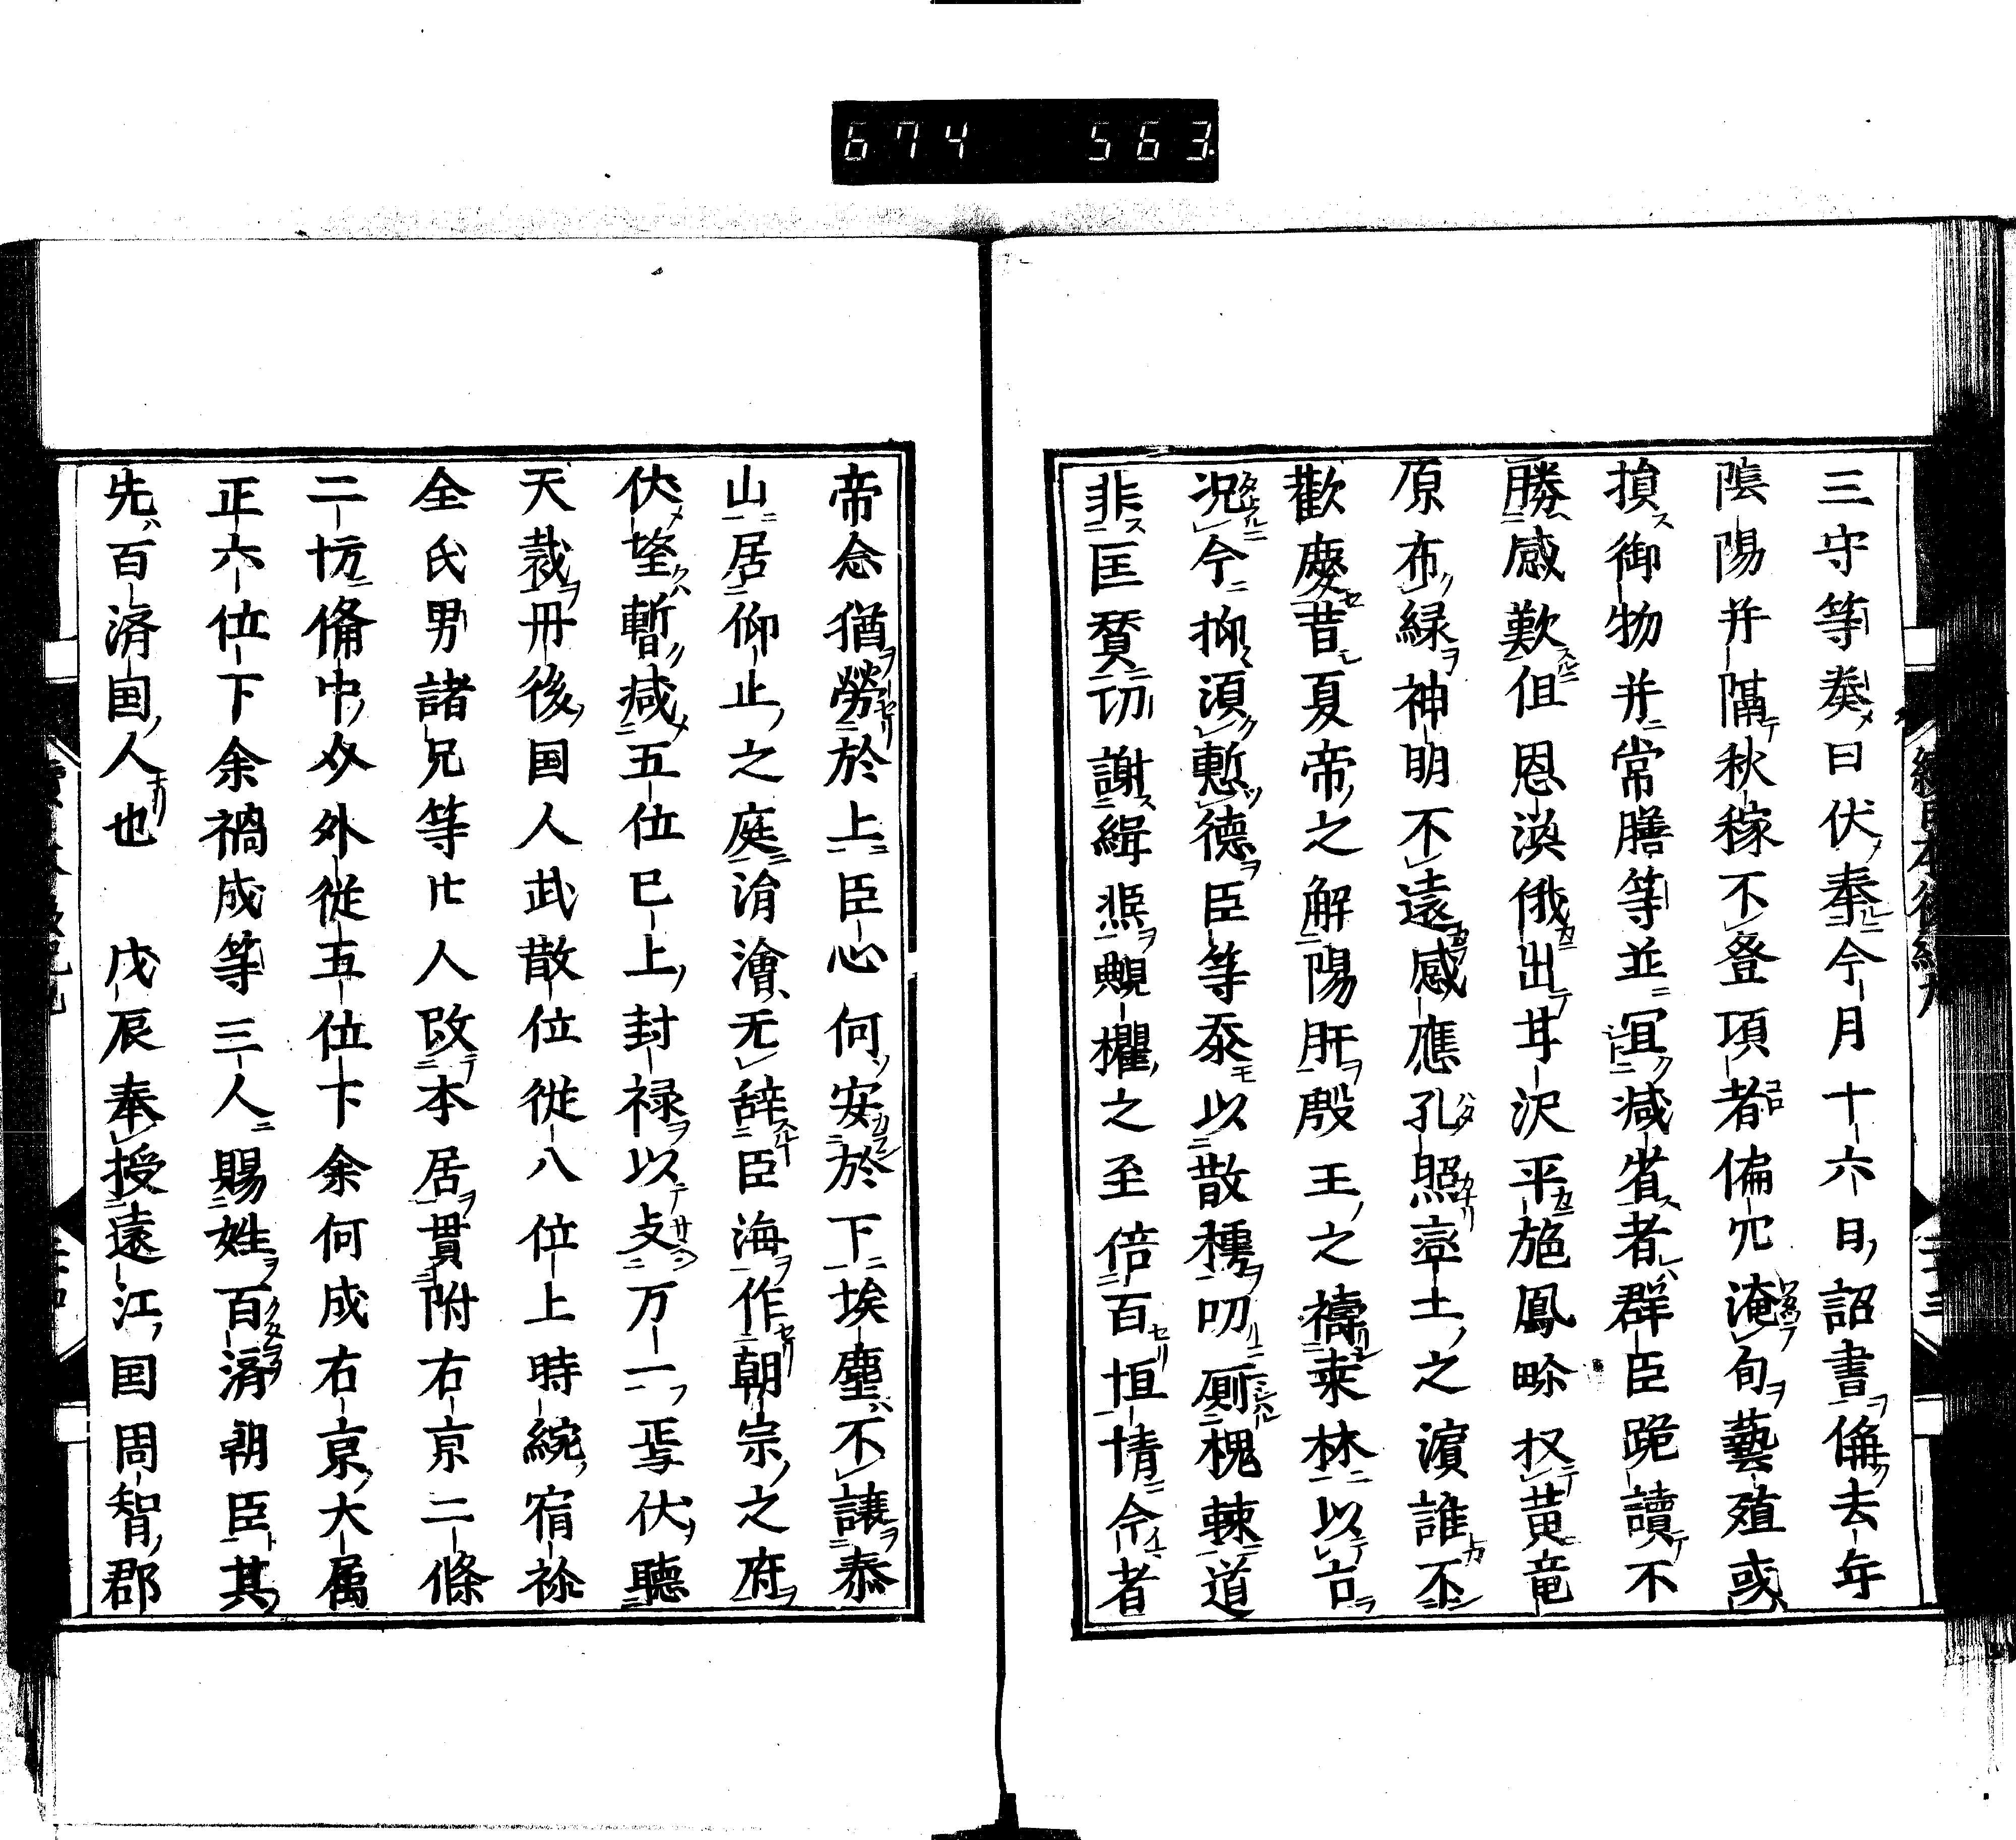 674 563
三守等奏曰伏奉今月十六日詔書偁去年
陰陽并隔秋稼不登項者偏咒淹旬藝殖或
損御物并常膳等並宜減省者群臣跪讀不
勝感歎但恩渙俄出甘沢平施鳳畛扠黄竜
原布緑神明不遠感應孔照率土之濱誰不
歡慶昔夏帝之解陽肝殷王之禱桒林以古
況今抑須慙德臣等忝以散樗叨厠槐棘道
非匡賛切謝緝熈覥懼之至倍百恒情令者
帝念猶勞於上臣心何安於下埃塵不讓泰
山居仰止之庭渧澮无辞臣海作朝宗之府
伏望暫减五位已上封禄以支万一焉伏聽
天裁丹後国人武散位従八位上時綂宿祢
全氏男諸兄等廿人改本居貫附右京二條
二坊備中介外従五位下余何成右京大属
正六位下余禍成等三人賜姓百済朝臣其
先百済国人也　戊辰奉授遠江国周智郡